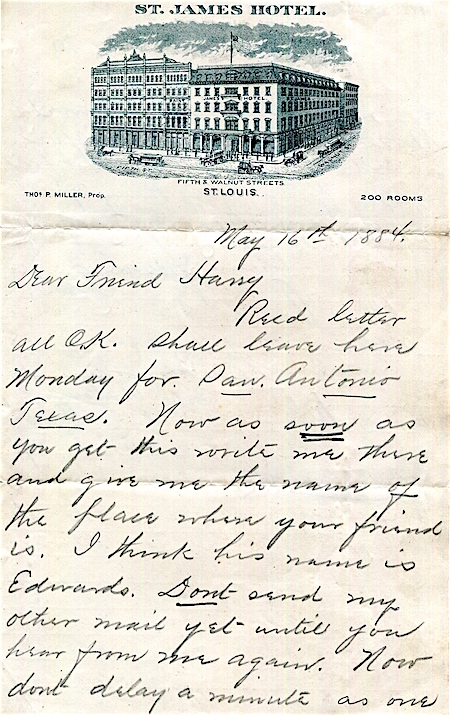 ST. JAMES HOTEL.
ST JAMES HOTEL
FIFTH & WALNUT STREETS
THOS P. MILLER, Prop. ST. LOUIS. 200 ROOMS
May 16th 1884.
Dear Friend Harry
Recd letter
all O.K. shall leave here
Monday for. San. Antonio
Texas. Now as soon as
you get this write me there
and give me the name of
the place where your friend
is. I think his name is
Edwards. Dont send my
other mail yet until you
hear from me again. Now
dont delay a minute as one